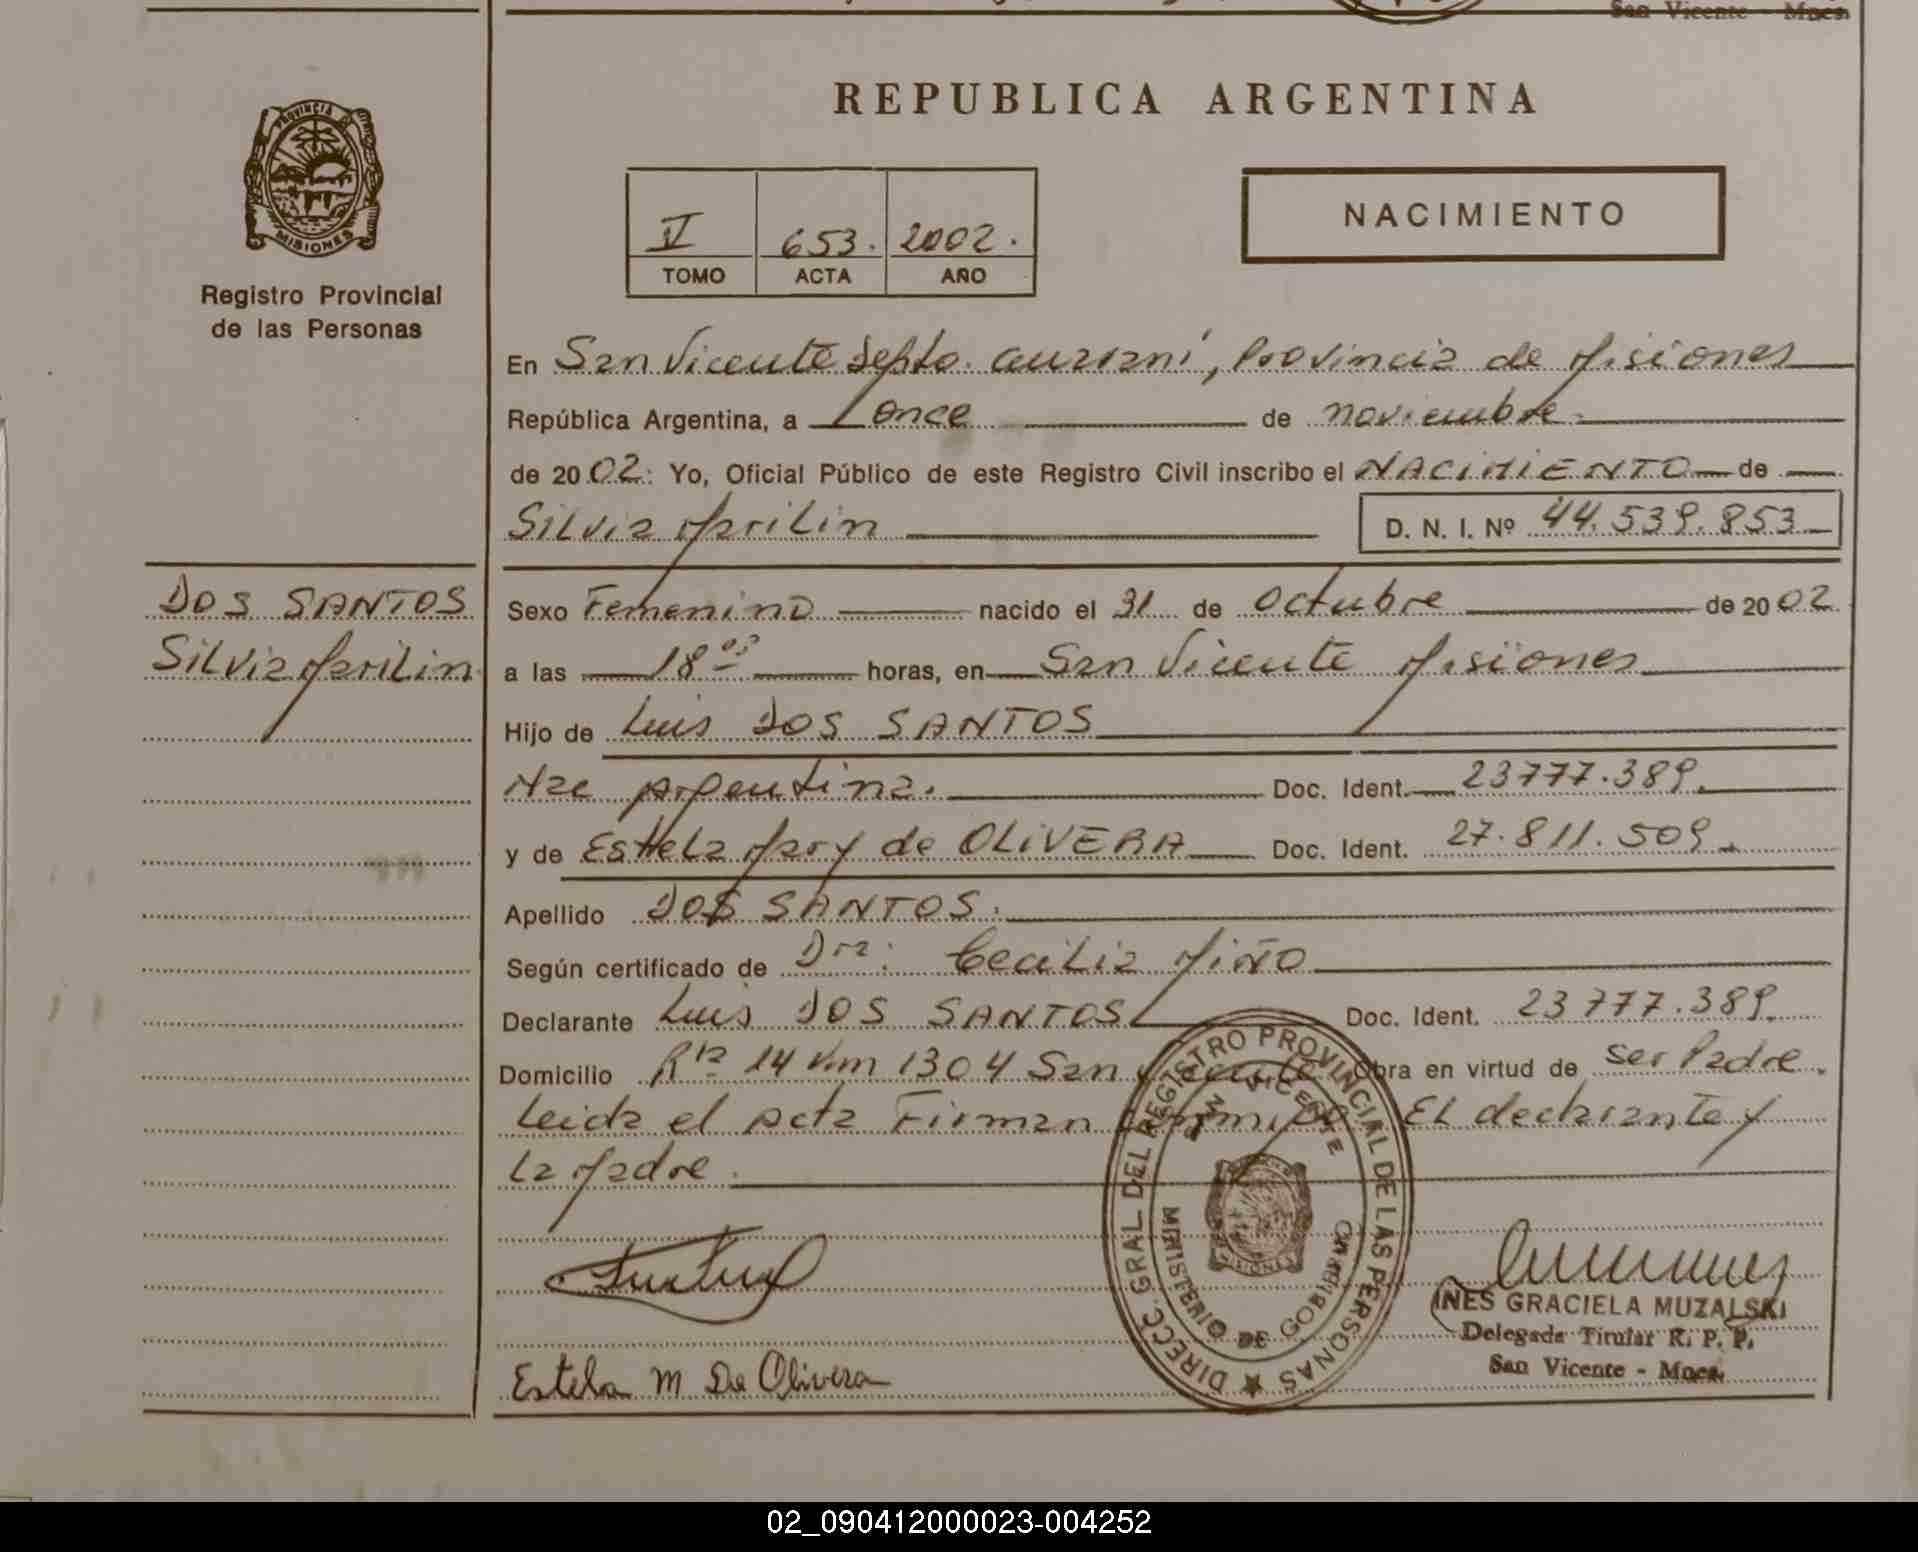 San Vicente - Mnes.
REPUBLICA ARGENTINA
PROVINCIA DE
MISIONES
Registro Provincial
de las Personas
V 653. 2002.
TOMO ACTA AÑO
NACIMIENTO
En San Vicente Depto. Guaraní, Provincia de Misiones
República Argentina, a once de noviembre
de 2002: Yo, Oficial Público de este Registro Civil inscribo el NACIMIENTO de
Silvia Marilin D. N. I. Nº 44.539.853
DOS SANTOS
Silvia Marilin
Sexo Femenino nacido el 31 de Octubre de 2002
a las 18 05 horas, en San Vicente Misiones
Hijo de Luis DOS SANTOS
Nac Argentina. Doc. Ident. 23777.389.
y de Estela Mary de OLIVERA Doc. Ident. 27.811.509.
Apellido DOS SANTOS.
Según certificado de Dra: Cecilia Miño
Declarante Luis DOS SANTOS Doc. Ident. 23777.389.
Domicilio Rta 14 Km 1304 San Vicente Obra en virtud de ser Padre.
Leida el acta Firman conmigo El declarante y
La Madre.
DIRECC. GRAL DEL REGISTRO PROVINCIAL DE LAS PERSONAS
SAN VICENTE
MISIONES
MINISTERIO DE GOBIERNO
INES GRACIELA MUZALSKI
Delegada Titular R. P. P.
San Vicente - Mnes.
Estela M De Olivera
02_090412000023-004252